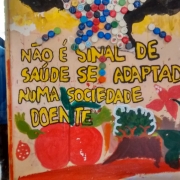 NÃO É SINAL DE
SAÚDE SER ADAPTAD
NUMA SOCIEDADE
DOENTE